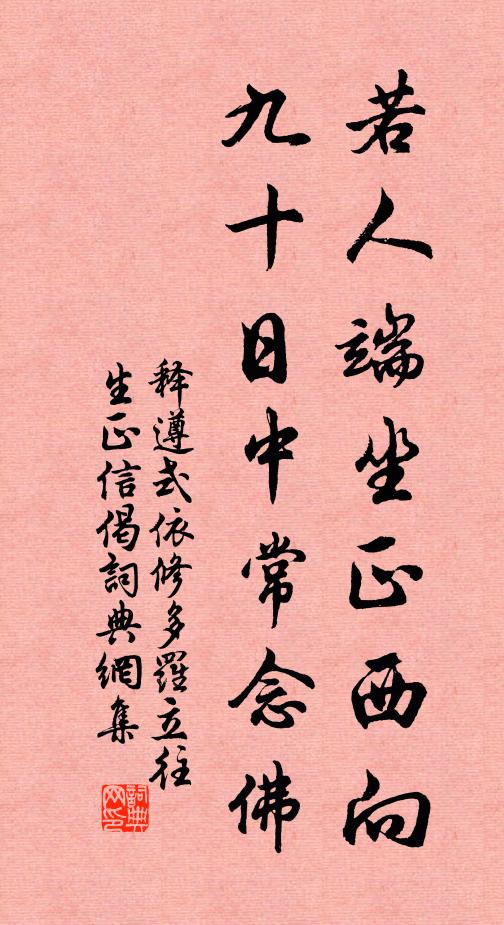 若人端坐正西向
九十日中常念佛
释遵式依修多羅立往
生正信偈詞典網集
詞典网印